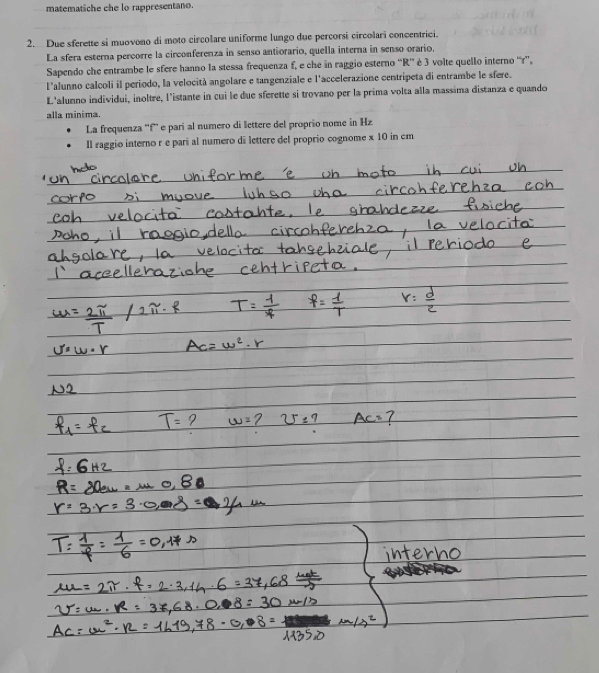 matematiche che lo rappresentano.
2. Due sferette si muovono di moto circolare uniforme lungo due percorsi circolari concentrici.
La sfera esterna percorre la circonferenza in senso antiorario, quella interna in senso orario.
Sapendo che entrambe le sfere hanno la stessa frequenza f, e che in raggio esterno "R" è 3 volte quello interno "r",
l'alunno calcoli il periodo, la velocità angolare e tangenziale e l'accelerazione centripeta di entrambe le sfere.
L'alunno individui, inoltre, l'istante in cui le due sferette si trovano per la prima volta alla massima distanza e quando
alla minima.
• La frequenza "f" e pari al numero di lettere del proprio nome in Hz
• Il raggio interno r e pari al numero di lettere del proprio cognome x 10 in cm
un moto circolare uniforme è un moto in cui un
corpo si muove lungo una circonferenza con
con velocità costante. le grandezze fisiche
sono, il raggio della circonferenza, la velocità
angolare, la velocità tangenziale, il periodo e
l'accellerazione centripeta.
ω = 2π/T / 2π·f T = 1/f f = 1/T r = d/2
v = ω·r Ac = ω²·r
N2
f1 = f2 T = ? ω = ? v = ? Ac = ?
f = 6 Hz
R = 80cm = m 0,80
r = 3·r = 3·0,8 = 2,4 m
T = 1/f = 1/6 = 0,17 s
ω = 2π·f = 2·3,14·6 = 37,68
interno
v = ω·R = 37,68·0,8 = 30 m/s
Ac = ω²·R = 1419,78·0,8 = m/s²
1135,0